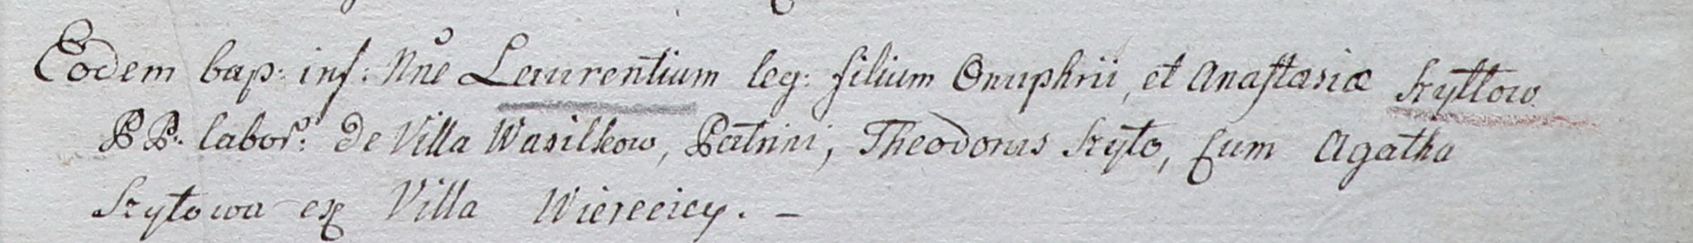 Eodem bap: inf: Nne Laurentium leg: filium Onuphrii, et Anastasiæ Szyttow
PP. labor: de Villa Wasilkow, Patrini, Theodorus Szyto, cum Agatha
Szytowa ex Villa Wiereicy. –